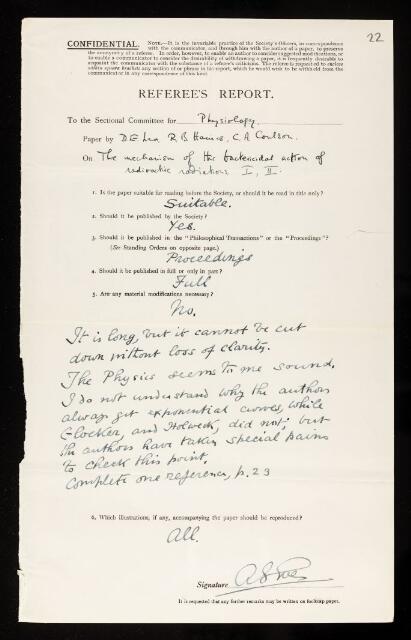 22
CONFIDENTIAL. NOTE.—It is the invariable practice of the Society's Officers, in correspondence
with the communicator, and through him with the author of a paper, to preserve
the anonymity of a referee. In order, however, to enable an author to consider suggested modifications, or
to enable a communicator to consider the desirability of withdrawing a paper, it is frequently desirable to
acquaint the communicator with the substance of a referee's criticisms. The referee is requested to enclose
within square brackets any section of or phrase in his report, which he would wish to be withheld from the
communicator in any correspondence of this kind.
REFEREE'S REPORT.
To the Sectional Committee for Physiology.
Paper by D E Lea R B Haines, C. A Coulson.
On The mechanism of the bactericidal action of
radioactive radiations I, II.
1. Is the paper suitable for reading before the Society, or should it be read in title only?
Suitable.
2. Should it be published by the Society?
Yes.
3. Should it be published in the "Philosophical Transactions" or the "Proceedings"?
(See Standing Orders on opposite page.)
Proceedings
4. Should it be published in full or only in part?
Full
5. Are any material modifications necessary?
No.
It is long, but it cannot be cut
down without loss of clarity.
The Physics seems to me sound.
I do not understand why the authors
always get exponential curves, while
Glocker, and Holweck, did not; but
the authors have taken special pains
to check this point.
Complete one reference, p. 23
6. Which illustrations, if any, accompanying the paper should be reproduced?
All.
Signature
It is requested that any further remarks may be written on foolscap paper.